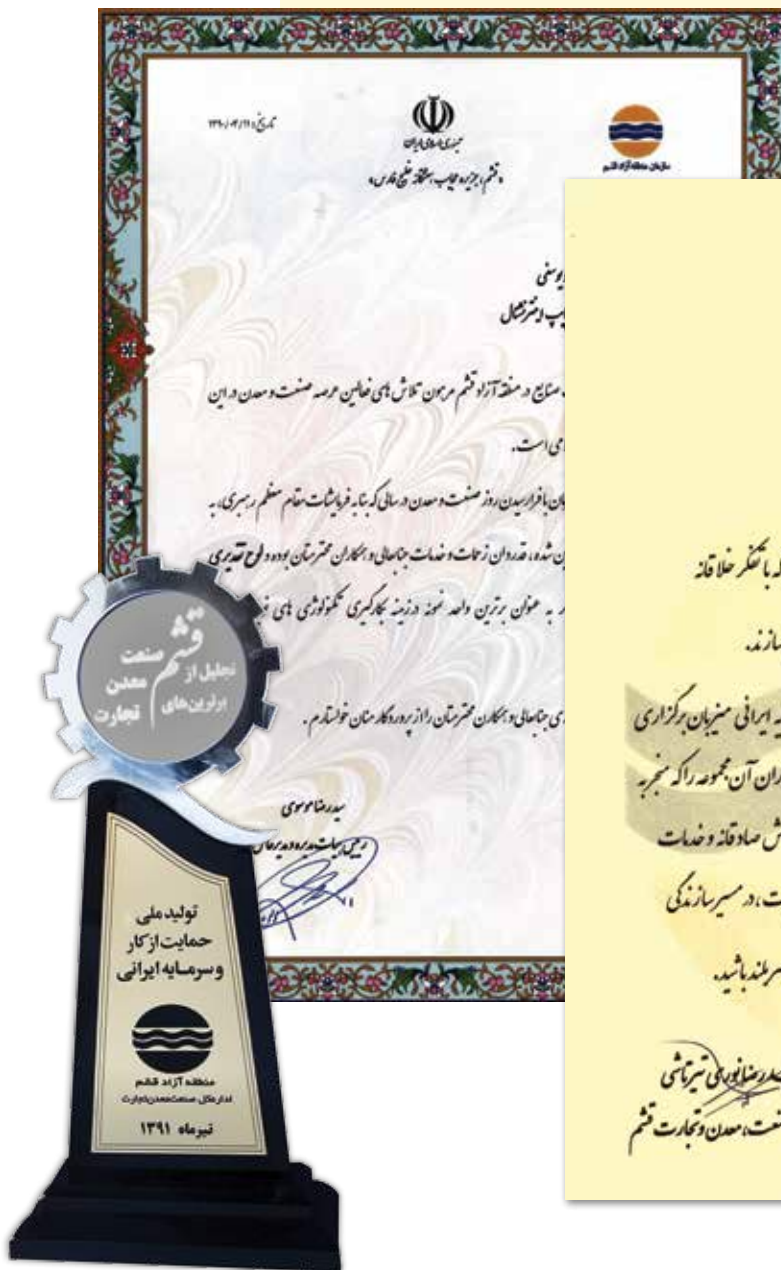 جمهوری اسلامی ایران
«قشم، جزیره عجایب هفتگانه خلیج فارس»
سازمان منطقه آزاد قشم
یوسفی
صنایع در منطقه آزاد قشم مرهون تلاش های فعالین عرصه صنعت و معدن در این
است.
با فرارسیدن روز صنعت و معدن در سالی که بنا به فرمایشات مقام معظم رهبری، به
شده، قدردان زحمات و خدمات جنابعالی و همکاران محترمتان بوده و لوح تقدیری
به عنوان برترین واحد نمونه در زمینه بکارگیری تکنولوژی های
جنابعالی و همکارن محترمتان را از پروردگار منان خواستارم.
سیدرضا موسوی
رئیس هیات مدیره و مدیرعامل
تجلیل از
برترین‌های
قشم
صنعت
معدن
تجارت
تولید ملی
حمایت از کار
و سرمــایه ایرانی
منطقه آزاد قشم
اداره‌کل صنعت‌معدن‌تجارت
تیرماه ۱۳۹۱
که با تفکر خلاقانه
سازند.
ایرانی میزبان برگزاری
آن مجموعه را که منجر به
صادقانه و خدمات
، در مسیر سازندگی
سربلند باشید.
نوری تیرتاشی
صنعت، معدن و تجارت قشم